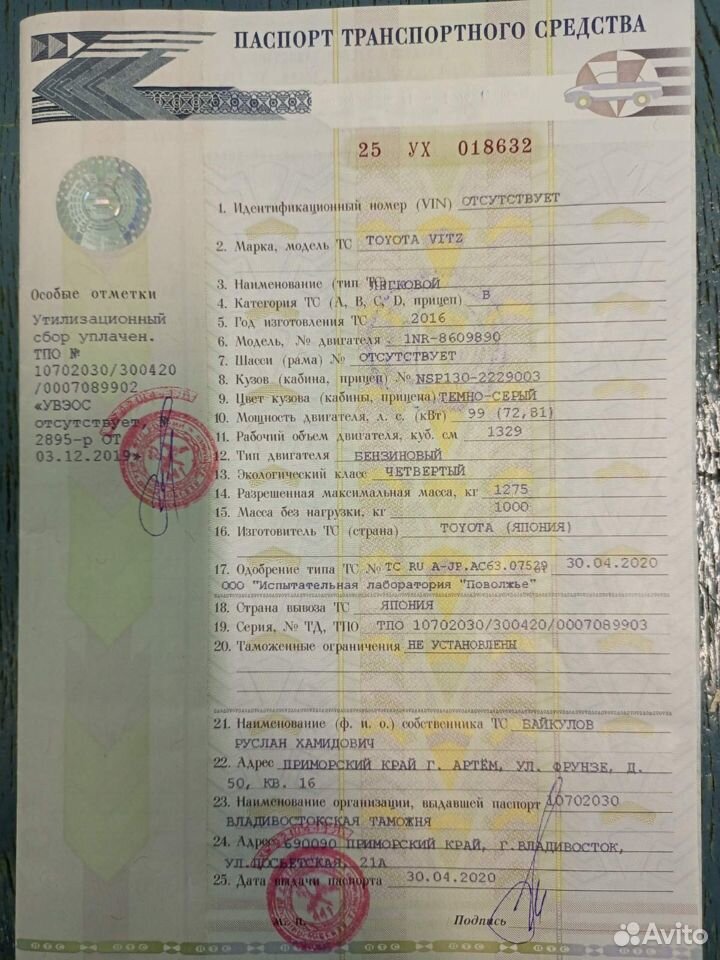 ПАСПОРТ ТРАНСПОРТНОГО СРЕДСТВА
25 УХ 018632
1. Идентификационный номер (VIN) ОТСУТСТВУЕТ
2. Марка, модель ТС TOYOTA VITZ
3. Наименование (тип ТС) ЛЕГКОВОЙ
4. Категория ТС (A, B, C, D, прицеп) B
5. Год изготовления ТС 2016
6. Модель, № двигателя 1NR-8609890
7. Шасси (рама) № ОТСУТСТВУЕТ
8. Кузов (кабина, прицеп) № NSP130-2229003
9. Цвет кузова (кабины, прицепа) ТЕМНО-СЕРЫЙ
10. Мощность двигателя, л. с. (кВт) 99 (72,81)
11. Рабочий объем двигателя, куб. см 1329
12. Тип двигателя БЕНЗИНОВЫЙ
13. Экологический класс ЧЕТВЕРТЫЙ
14. Разрешенная максимальная масса, кг 1275
15. Масса без нагрузки, кг 1000
16. Изготовитель ТС (страна) TOYOTA (ЯПОНИЯ)
17. Одобрение типа ТС № ТС RU A-JP.АС63.07529 30.04.2020
ООО "Испытательная лаборатория "Поволжье"
18. Страна вывоза ТС ЯПОНИЯ
19. Серия, № ТД, ТПО ТПО 10702030/300420/0007089903
20. Таможенные ограничения НЕ УСТАНОВЛЕНЫ
21. Наименование (ф. и. о.) собственника ТС БАЙКУЛОВ
РУСЛАН ХАМИДОВИЧ
22. Адрес ПРИМОРСКИЙ КРАЙ Г. АРТЁМ, УЛ. ФРУНЗЕ, Д.
50, КВ. 16
23. Наименование организации, выдавшей паспорт 10702030
ВЛАДИВОСТОКСКАЯ ТАМОЖНЯ
24. Адрес 690090 ПРИМОРСКИЙ КРАЙ, Г.ВЛАДИВОСТОК,
УЛ.ПОСЬЕТСКАЯ, 21А
25. Дата выдачи паспорта 30.04.2020
М. П. Подпись
Особые отметки
Утилизационный
сбор уплачен.
ТПО №
10702030/300420
/0007089902
«УВЭОС
отсутствует, №
2895-р ОТ
03.12.2019»
Avito